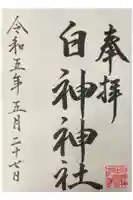 奉拝
白神神社
令和五年五月二十七日